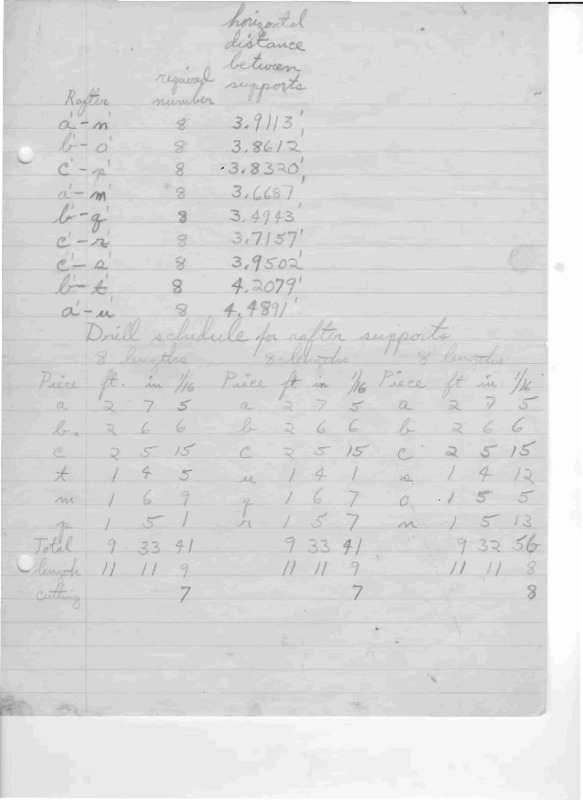 horizontal
distance
between
required supports
Rafter number
a'-n' 8 3.9113'
b'-o' 8 3.8612'
c'-p' 8 3.8320'
a'-m' 8 3.6687'
b'-q' 8 3.4943'
c'-r' 8 3.7157'
c'-s' 8 3.9502'
b'-t' 8 4.2079'
a'-u' 8 4.4891'
Drill schedule for rafter supports
8 lengths 8 lengths 8 lengths
Piece ft. in 1/16 Piece ft in 1/16 Piece ft in 1/16
a 2 7 5 a 2 7 5 a 2 7 5
b. 2 6 6 b 2 6 6 b 2 6 6
c 2 5 15 c 2 5 15 c 2 5 15
t 1 4 5 u 1 4 1 s 1 4 12
m 1 6 9 q 1 6 7 o 1 5 5
p 1 5 1 r 1 5 7 n 1 5 13
Total 9 33 41 9 33 41 9 32 56
length 11 11 9 11 11 9 11 11 8
cutting 7 7 8